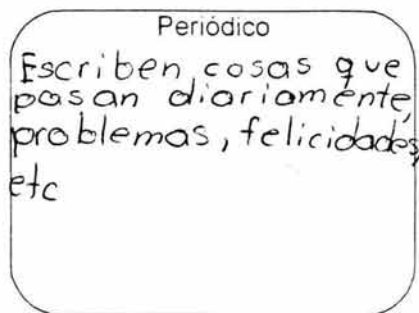 Periódico
Escriben cosas que
pasan diariamente,
problemas, felicidades,
etc